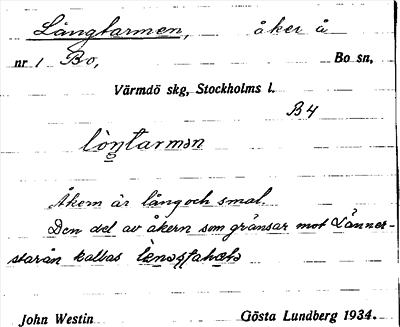 Långtarmen, åker å
nr 1 Bo, Bo sn,
Värmdö skg, Stockholms l.
B4
Åkern är lång och smal.
Den del av åkern som gränsar mot Länner-
starån kallas
John Westin Gösta Lundberg 1934.